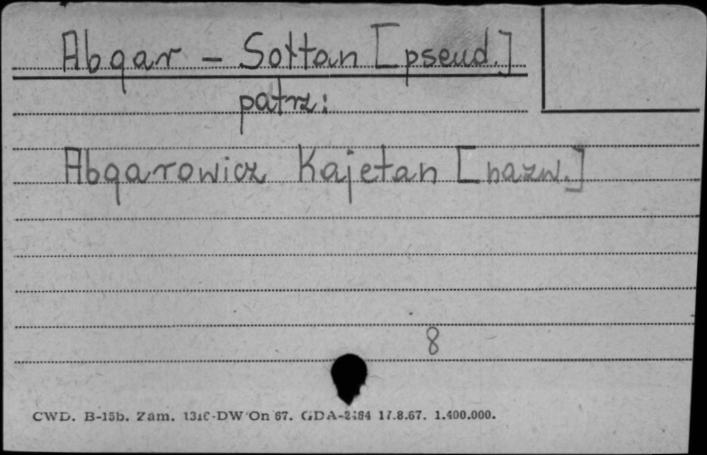 Abgar - Sołtan [pseud.]
patrz:
Abgarowicz Kajetan [nazw.]
8
CWD. B-15b. Zam. DW On 67. GDA- 17.8.67. 1.400.000.